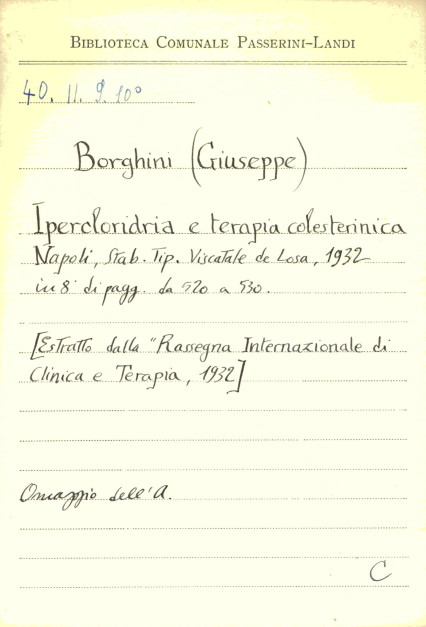 BIBLIOTECA COMUNALE PASSERINI-LANDI
40. 11. 9. 10°
Borghini (Giuseppe)
Ipercloridria e terapia colesterinica
Napoli, Stab. Tip. Viscatale de Losa, 1932
in 8° di pagg. da 520 a 530.
[Estratto dalla "Rassegna Internazionale di
Clinica e Terapia, 1932]
Omaggio dell'A.
C